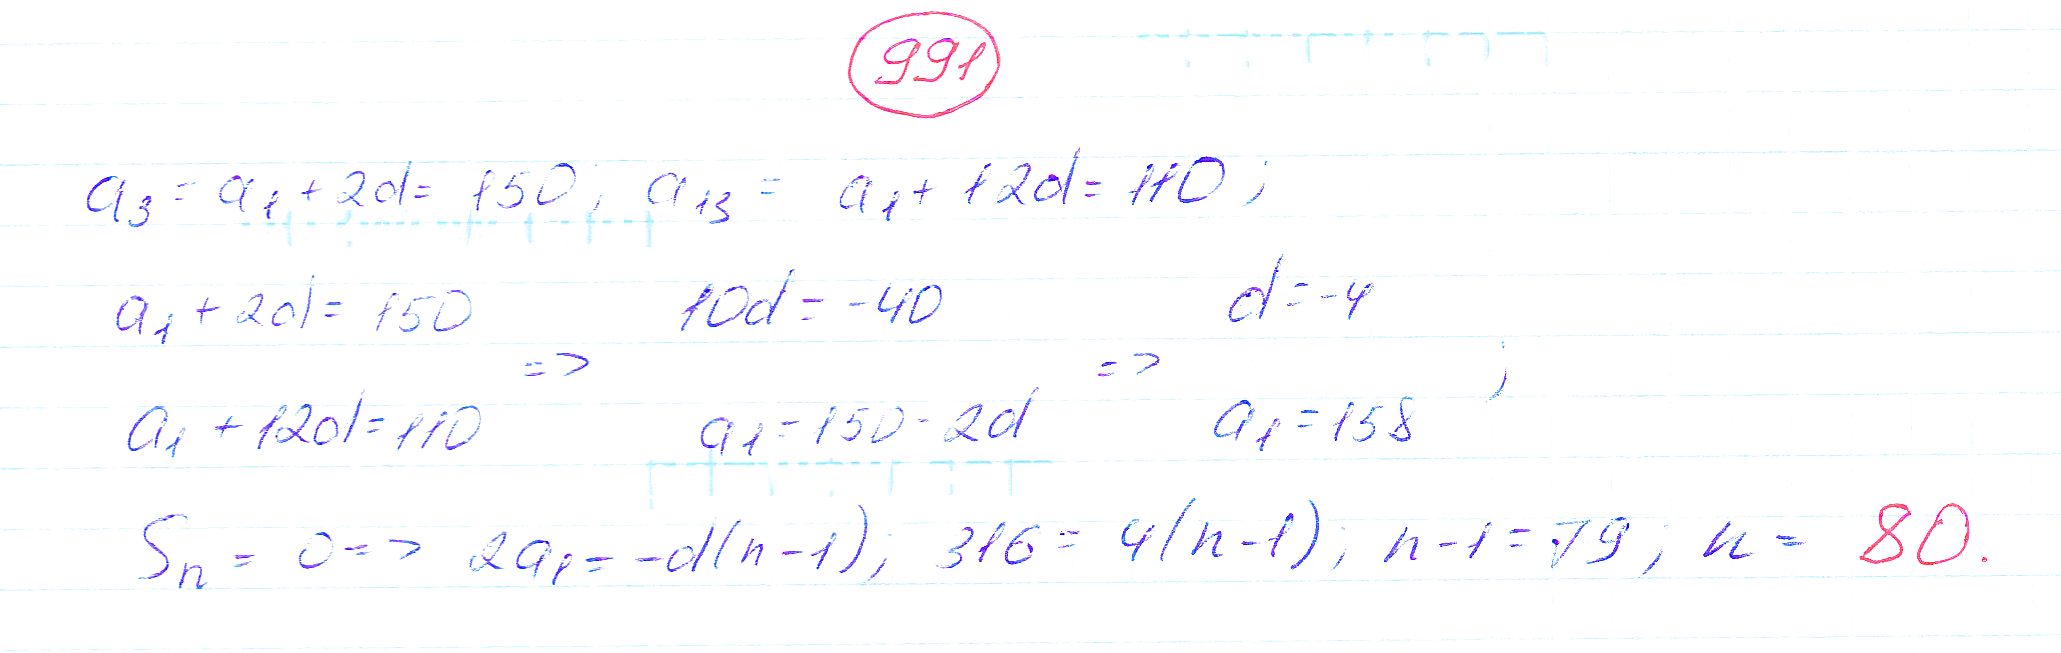 991
a₃ = a₁ + 2d = 150; a₁₃ = a₁ + 12d = 110;
a₁ + 2d = 150 10d = -40 d = -4
=> => ;
a₁ + 12d = 110 a₁ = 150 - 2d a₁ = 158
Sₙ = 0 => 2a₁ = -d(n-1); 316 = 4(n-1); n-1 = 79; n = 80.